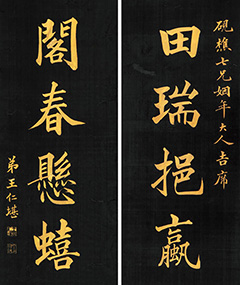 硯樵七兄姻年大人吉席
田瑞挹贏
閣春懸蟢
弟王仁堪